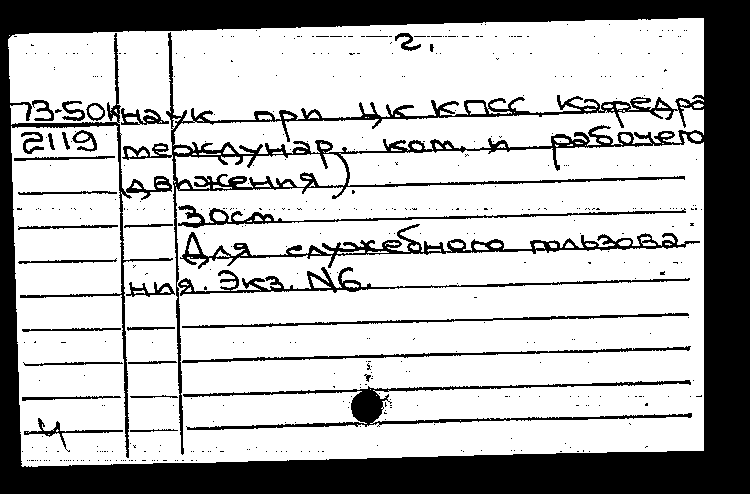 2.
73-50К наук при ЦК КПСС. Кафедра
2119 междунар. ком. и рабочего
движения).
30см.
Для служебного пользова-
ния. Экз. N6.
Ч